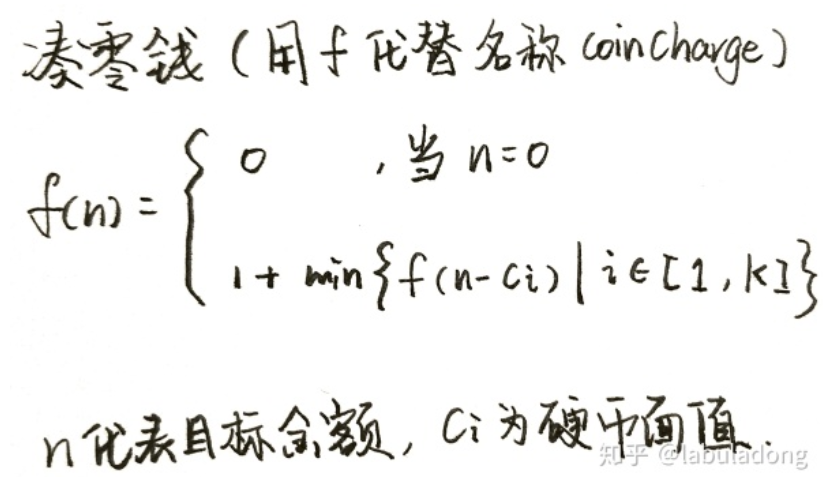 凑零钱（用f代替名称coinCharge）
f(n) = { 0 , 当 n=0
1 + min{f(n-ci) | i∈[1,k]}
n代表目标金额, ci为硬币面值.
知乎 @labuladong